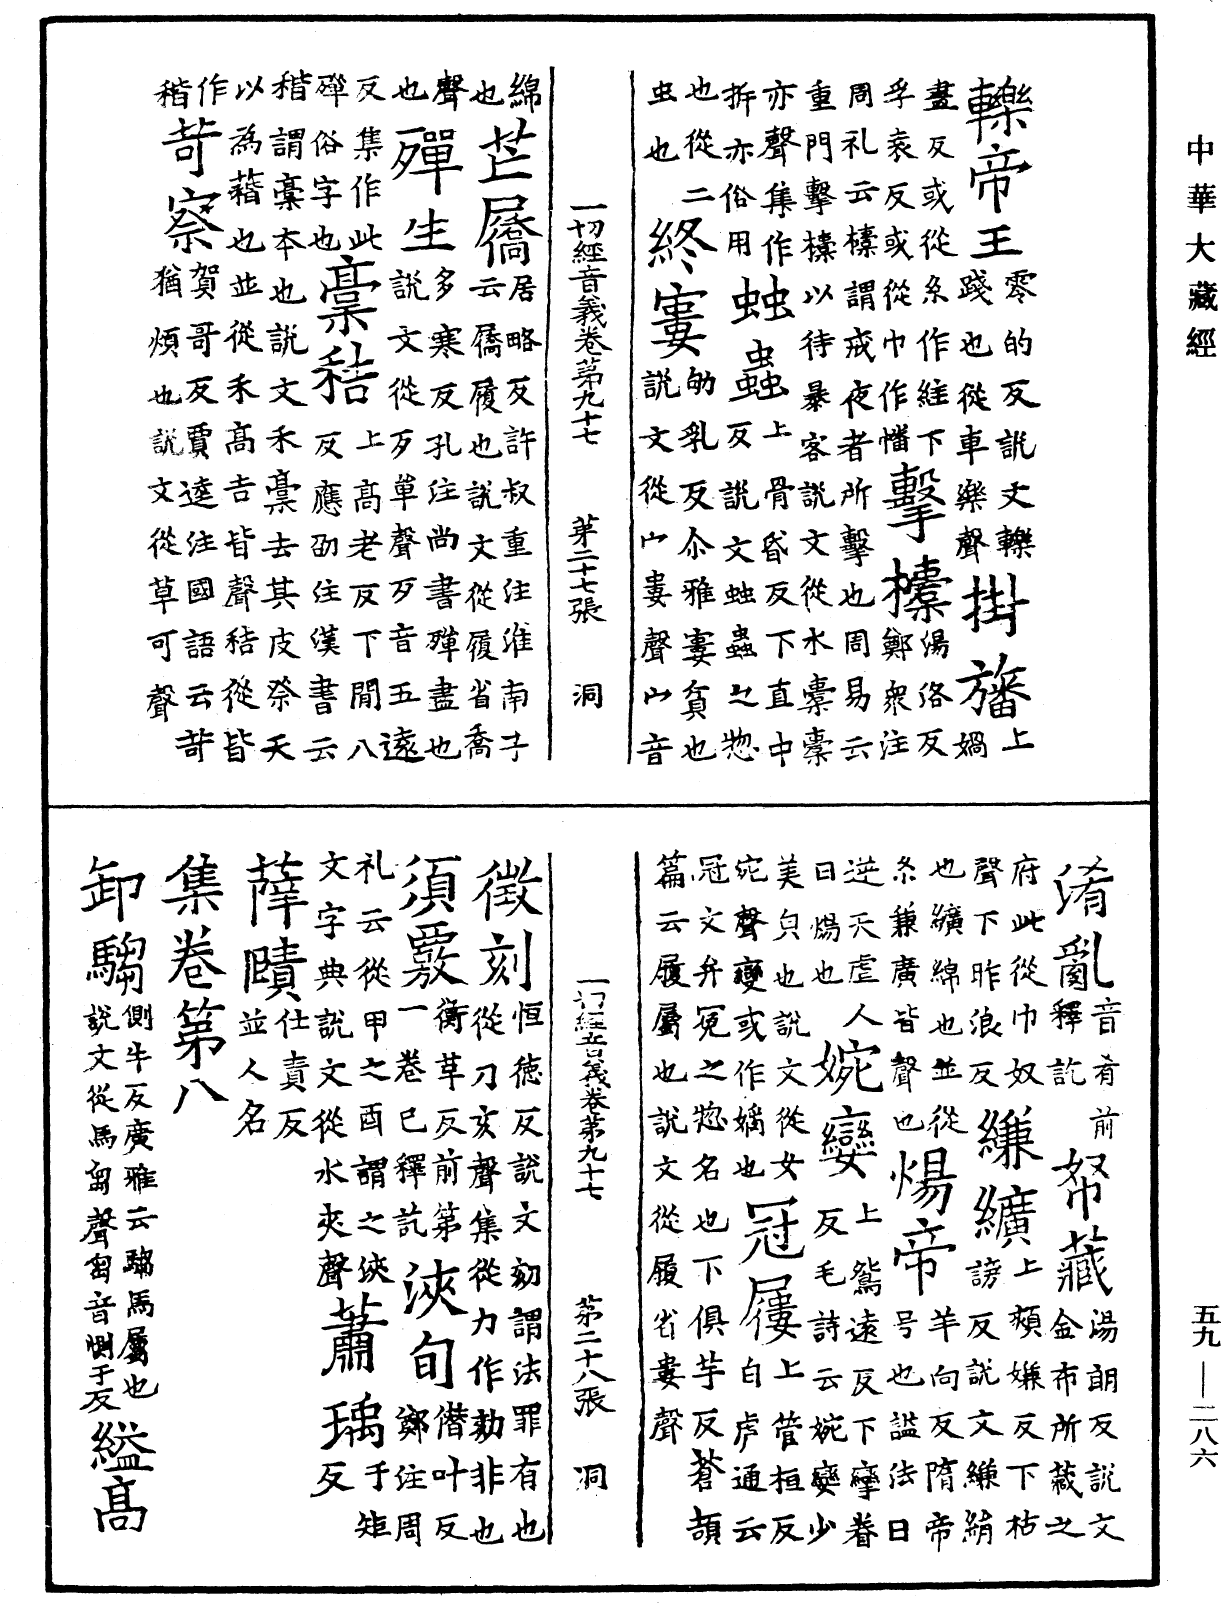 中華大藏經
轢帝王零的反說文轢踐也從車樂聲掛旛上媧
畫反或從糸作絓下孚袁反或從巾作幡擊㯓湯洛反鄭衆注
周礼云㯓謂戒夜者所擊也周易云重門擊㯓以待暴客說文從水橐橐
亦聲集作拆亦俗用䖵蟲上骨昏反下直中反說文䖵蟲之惣
也從二虫也終窶劬乳反尒雅窶貧也說文從宀婁聲宀音
一切經音義卷第九十七 第二十七張 洞
綿也芒屩居略反許叔重注淮南子云屩履也說文從履省喬
聲也殫生多寒反孔注尚書殫盡也說文從歹單聲歹音五遠
反集作此殫俗字也稾秸上高老反下閒八反應劭注漢書云
稭謂稾本也說文禾稾去其皮祭天以為藉也並從禾高吉皆聲秸從皆
作稭苛察賀哥反賈逵注國語云苛猶煩也說文從草可聲
淆亂音肴前釋訖帑藏湯朗反說文金布所藏之
府此從巾奴聲下昨浪反縑纊上頰嫌反下枯謗反說文縑絹
也纊綿也並從糸兼廣皆聲也煬帝羊向反隋帝号也謚法曰
逆天虐人曰煬也婉孌上鴛遠反下攣眷反毛詩云婉孌少
美皃也說文從女宛聲孌或作嫡也冠屨上管桓反白虎通云
冠文弁冕之惣名也下俱芋反蒼頡篇云屨屬也說文從履省婁聲
一切經音義卷第九十七 第二十八張 洞
徵刻恒德反說文刻謂法罪有也從刀亥聲集從力作劾非也
須覈衡革反前第一卷已釋訖浹旬僭叶反鄭注周
礼云從甲之酉謂之浹文字典說文從水夾聲蕭瑀于矩反
薛賾仕責反並人名
集卷第八
卸騶側牛反廣雅云騶馬屬也說文從馬芻聲芻音惻于反縊高
五九—二八六